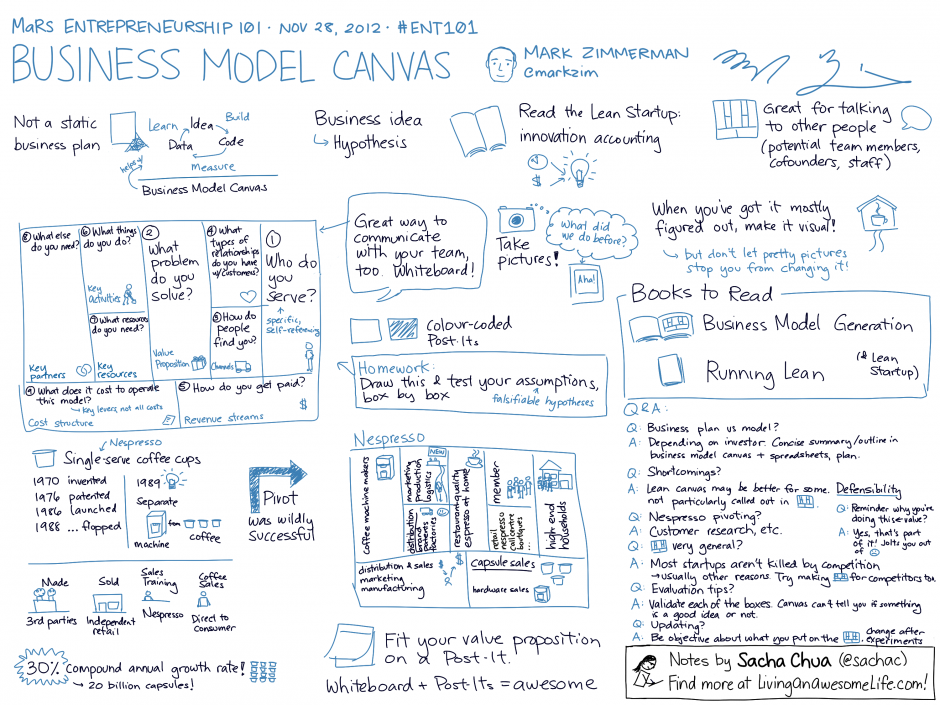 MaRS ENTREPRENEURSHIP 101 · NOV 28, 2012 · #ENT101
BUSINESS MODEL CANVAS
MARK ZIMMERMAN
@markzim
Not a static
business plan
Learn
Idea
Build
Data
Code
Measure
helps w/
Business Model Canvas
Business idea
Hypothesis
Read the Lean Startup:
innovation accounting
$
Great for talking
to other people
(potential team members,
cofounders, staff)
⑧ What else
do you need?
Key
partners
⑥ What things
do you do?
Key
activities
⑦ What resources
do you need?
Key
resources
②
What
problem
do you
solve?
Value
Proposition
④ What
types of
relationships
do you have
w/customers?
③ How do
people
find you?
Channels
①
Who do
you
serve?
specific,
self-referencing
⑨ What does it cost to operate
this model?
Key levers, not all costs
Cost structure
⑤ How do you get paid?
Revenue streams
$
Great way to
communicate
with your team,
too. Whiteboard!
Take
pictures!
What did
we do before?
Aha!
When you've got it mostly
figured out, make it visual!
but don't let pretty pictures
stop you from changing it!
colour-coded
Post-Its
Homework:
Draw this & test your assumptions,
box by box
falsifiable hypotheses
Books to Read
Business Model Generation
Running Lean
(& Lean
Startup)
Nespresso
Single-serve coffee cups
1970 invented
1976 patented
1986 launched
1988 ... flopped
1989
Separate
machine
from
coffee
Pivot
was wildly
successful
Made
3rd parties
Sold
Independent
retail
Sales
Training
Nespresso
Coffee
Sales
Direct to
consumer
30% compound annual growth rate!
20 billion capsules!
Nespresso
coffee machine makers
marketing
production
logistics
distribution
brand
patents
factories
NEW
restaurant-quality
espresso at home
member
retail
nespresso
call centre
boutiques
...
high end
households
distribution & sales
marketing
manufacturing
$
$
capsule sales
hardware sales
Fit your value proposition
on a Post-It.
Whiteboard + Post-Its = awesome
Q&A:
Q: Business plan vs model?
A: Depending on investor. Concise summary/outline in
business model canvas + spreadsheets, plan.
Q: Shortcomings?
A: Lean canvas may be better for some. Defensibility
not particularly called out in
Q: Reminder why you're
doing this value?
A: Yes, that's part
of it! Jolts you out
of
Q: Nespresso pivoting?
A: Customer research, etc.
Q: very general?
A: Most startups aren't killed by competition
usually other reasons. Try making for competitors too
Q: Evaluation tips?
A: Validate each of the boxes. Canvas can't tell you if something
is a good idea or not.
Q: Updating?
A: Be objective about what you put on the . change after
experiments
Notes by Sacha Chua (@sachac)
Find more at LivingAnAwesomeLife.com!